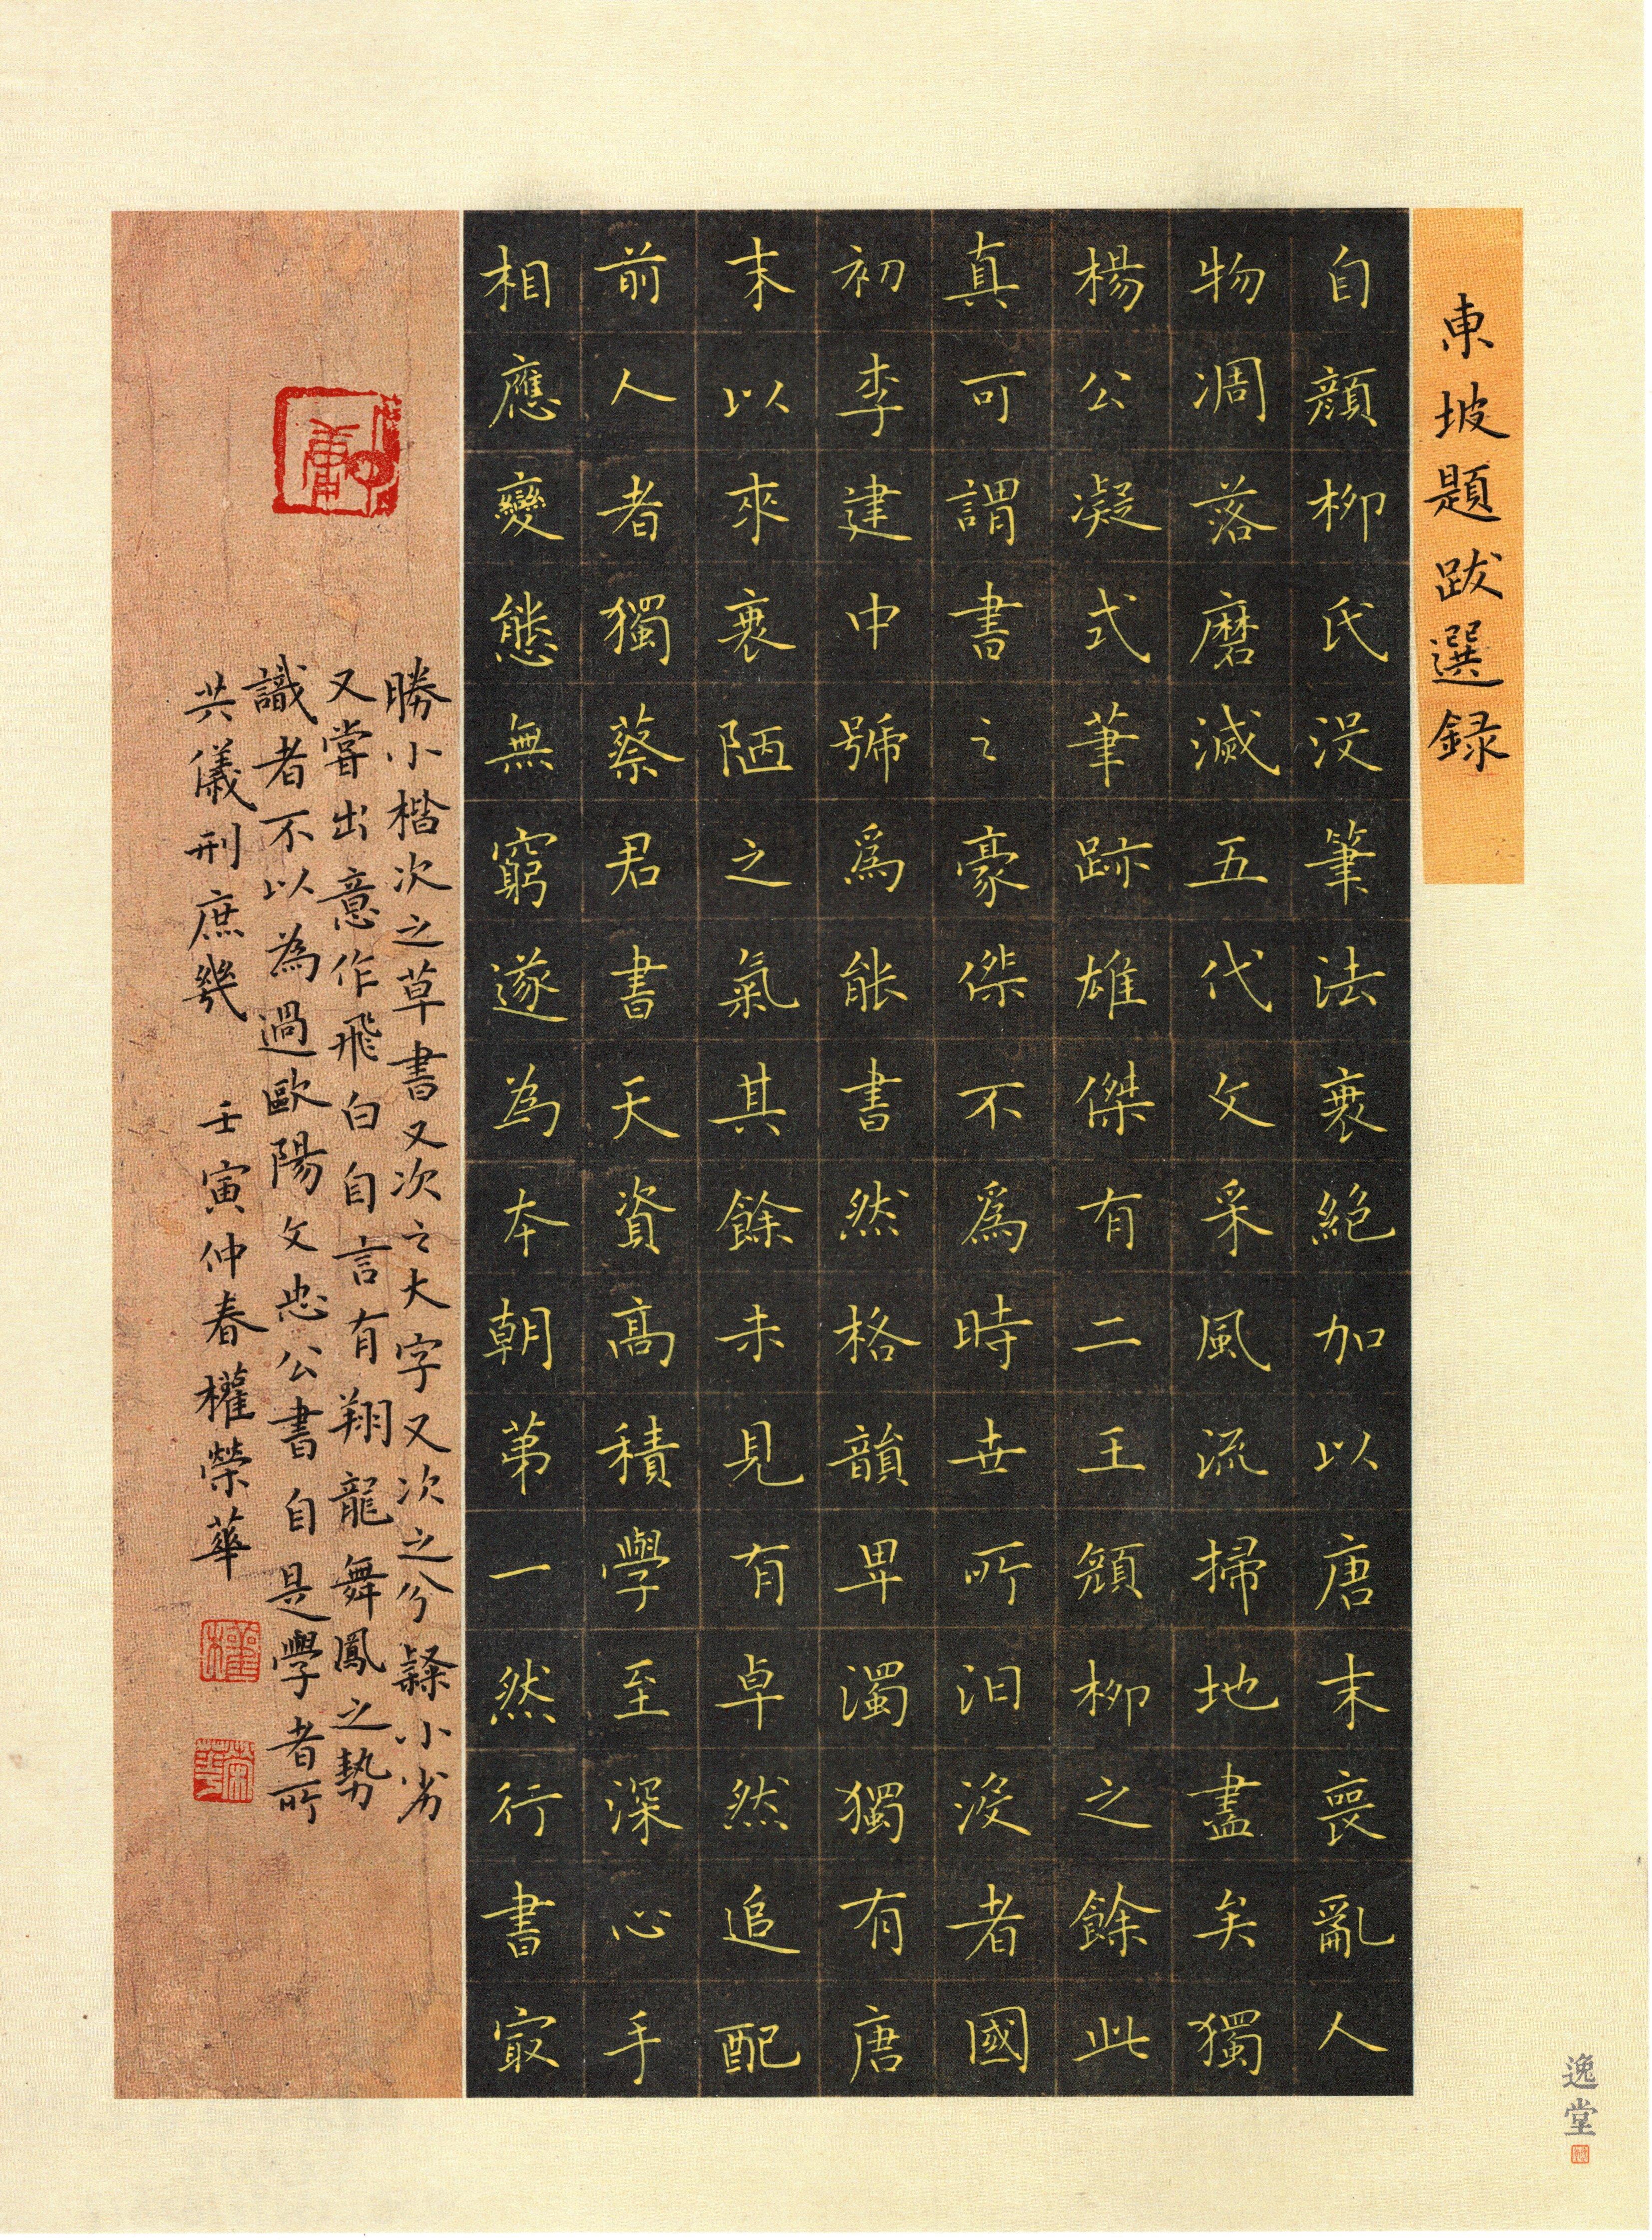 東坡題跋選録
自顏柳氏没筆法衰絶加以唐末喪亂人
物凋落磨滅五代文采風流掃地盡矣獨
楊公凝式筆跡雄傑有二王顏柳之餘此
真可謂書之豪傑不爲時世所汩没者國
初李建中號爲能書然格韻卑濁獨有唐
末以來衰陋之氣其餘未見有卓然追配
前人者獨蔡君書天資高積學至深心手
相應變態無窮遂為本朝第一然行書㝡
勝小楷次之草書又次之大字又次之分隸小劣
又嘗出意作飛白自言有翔龍舞鳳之勢
識者不以為過歐陽文忠公書自是學者所
共儀刑庶幾 壬寅仲春權榮華
權
榮華
逸堂